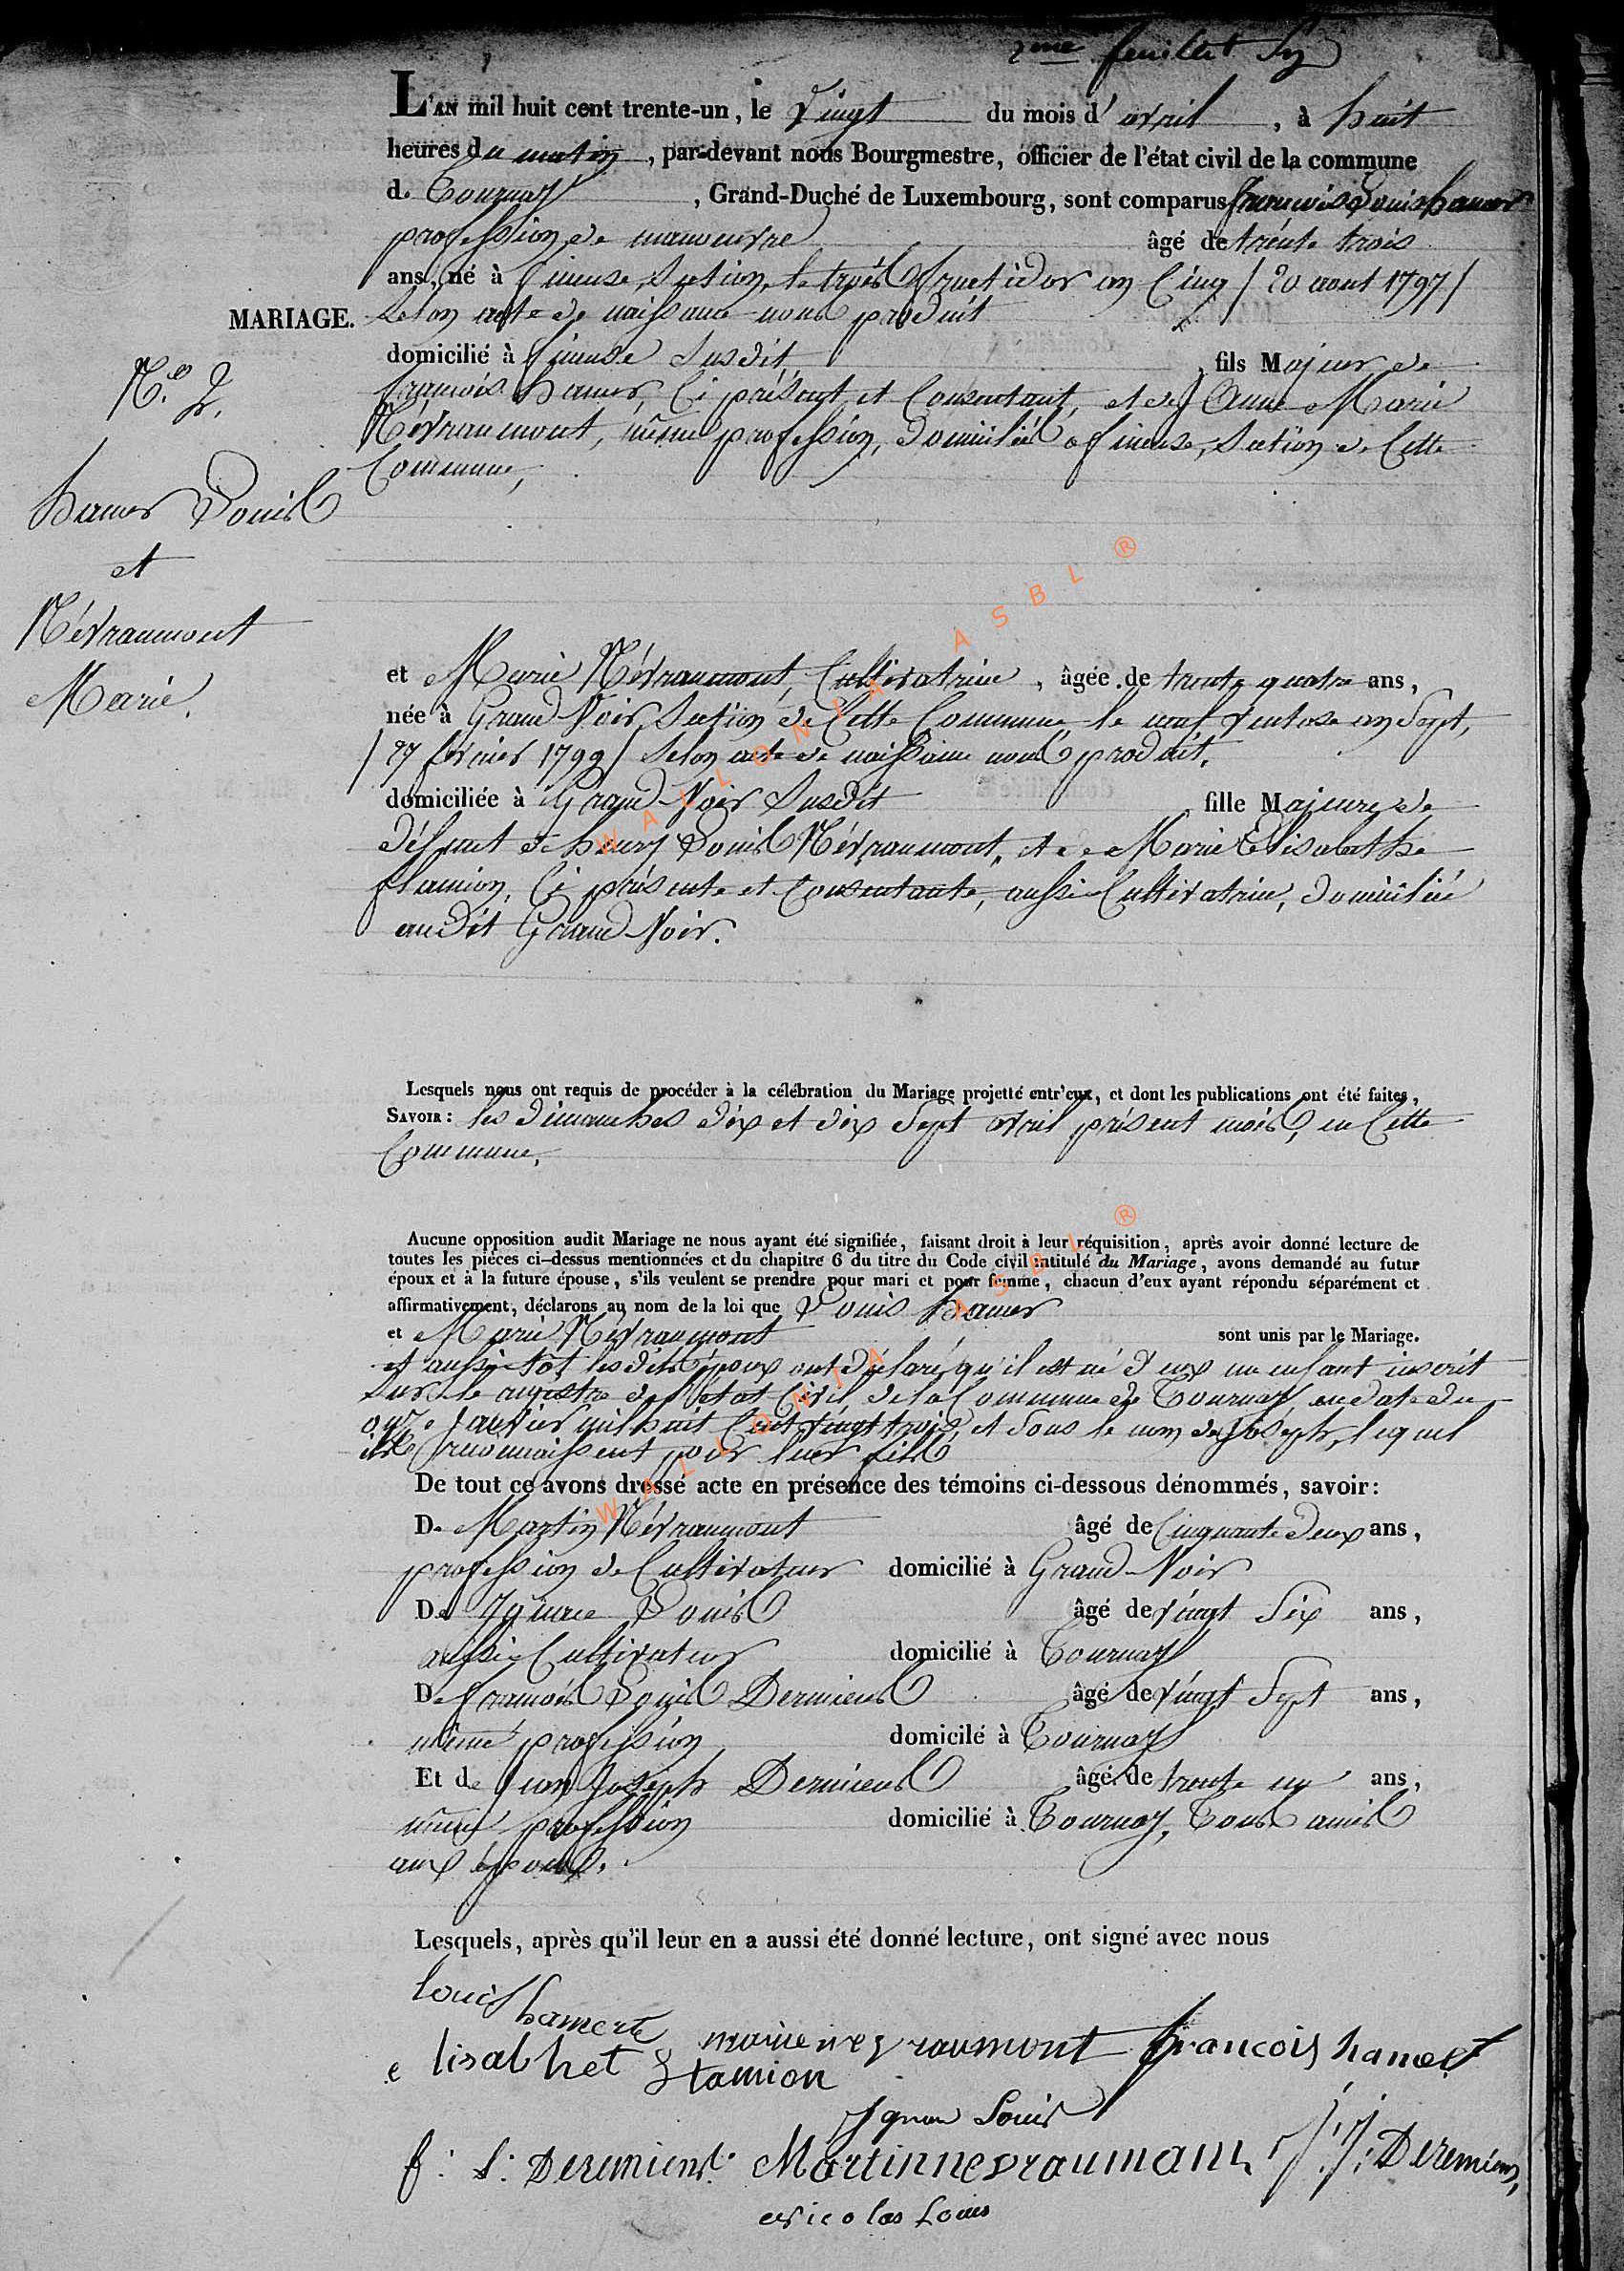 2me feuillet
L'AN mil huit cent trente-un, le vingt du mois d'avril, à huit
heures du matin, par-devant nous Bourgmestre, officier de l'état civil de la commune
de Tournay, Grand-Duché de Luxembourg, sont comparus françois Louis hamer
profession de manoeuvre âgé de trente trois
ans, né à fineuse, Section, le trois fructidor an Cinq / 20 aout 1797 /
MARIAGE.
Selon acte de naissance nous produit
domicilié à fineuse Susdit, fils Majeur de
françois hamer, Ci présent et Consentant, et de Anne Marie
Névraumont, même profession, domiciliés a fineuse, Section de Cette
Commune,
No. 2.
hamer Louis
et
Névraumont
Marie.
et Marie Névraumont, Cultivatrice, âgée de trente quatre ans,
née à Grand Voir, Section de Cette Commune, le neuf ventose an Sept,
/ 27 fevrier 1799 / Selon acte de naissance nous produit.
domiciliée à Grand Voir Susdit fille Majeure de
défunt de henry Louis Névraumont, et de Marie Elisabethe
flamion, Ci présente et Consentante, aussi Cultivatrice, domiciliée
audit Grand Voir.
Lesquels nous ont requis de procéder à la célébration du Mariage projetté entr'eux, et dont les publications ont été faites,
SAVOIR: les dimanches dix et dix Sept avril présent mois, en Cette
Commune.
Aucune opposition audit Mariage ne nous ayant été signifiée, faisant droit à leur réquisition, après avoir donné lecture de
toutes les pièces ci-dessus mentionnées et du chapitre 6 du titre du Code civil intitulé du Mariage, avons demandé au futur
époux et à la future épouse, s'ils veulent se prendre pour mari et pour femme, chacun d'eux ayant répondu séparément et
affirmativement, déclarons au nom de la loi que Louis hamer
et Marie Névraumont sont unis par le Mariage.
et aussi-tôt lesdits époux ont déclaré qu'il est né d'eux un enfant inscrit
Sur le registre de l'état Civil de la Commune de Tournay, en date du
onze janvier mil huit Cent vingt trois, et Sous le nom de Joseph, lequel
ils reconnaissent pour leur fils
De tout ce avons dressé acte en présence des témoins ci-dessous dénommés, savoir:
De Martin Névraumont âgé de Cinquante deux ans,
profession de Cultivateur domicilié à Grand Voir
De Ignace Louis âgé de vingt Six ans,
aussi Cultivateur domicilié à Tournay
De françois Louis Dermiens âgé de vingt Sept ans,
même profession, domicilé à Tournay
Et de jean Joseph Dermiens âgé de trente un ans,
même profession domicilié à Tournay, Tous amis
aux époux.
Lesquels, après qu'il leur en a aussi été donné lecture, ont signé avec nous
louis hamerte
marie nevraumont francois hamert
elisabhet flamion
Ignace Louis
f: L: Deremiens Martin nevraumont J: J: Deremiens,
nicolas Louis
WALLONIA ASBL ®
WALLONIA ASBL ®